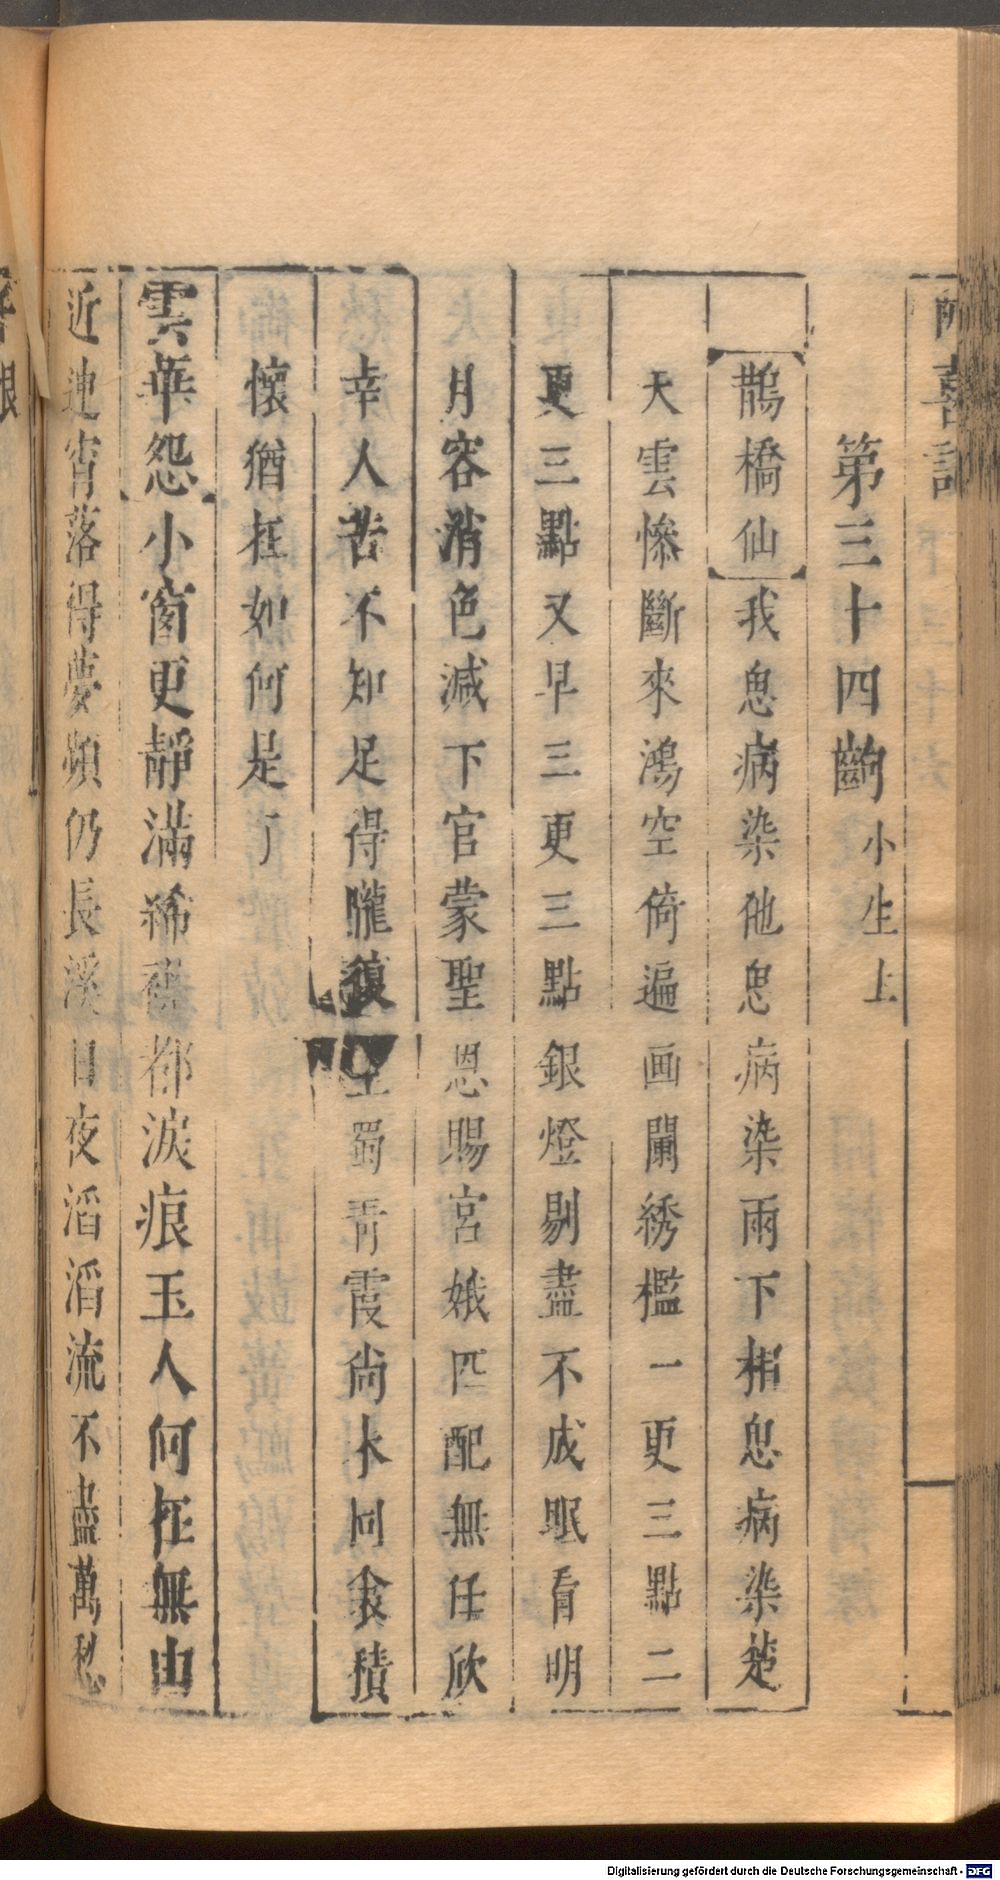 喜記
第三十四齣 小生上
鵲橋仙 我思病染他思病染雨下相思病染楚
天雲慘斷來鴻空倚遍画闌綉檻一更三點二
更三點又早三更三點銀燈剔盡不成眠看明
月容消色減下官蒙聖恩賜宮娥匹配無任欣
幸人苦不知足得隴復望蜀青霞尚未同衾積
懷猶在如何是了
雲華怨 小窗更靜滿綈袍都淚痕玉人何在無由
近連宵落得夢頻仍長溪日夜滔滔流不盡萬愁
Digitalisierung gefördert durch die Deutsche Forschungsgemeinschaft - DFG